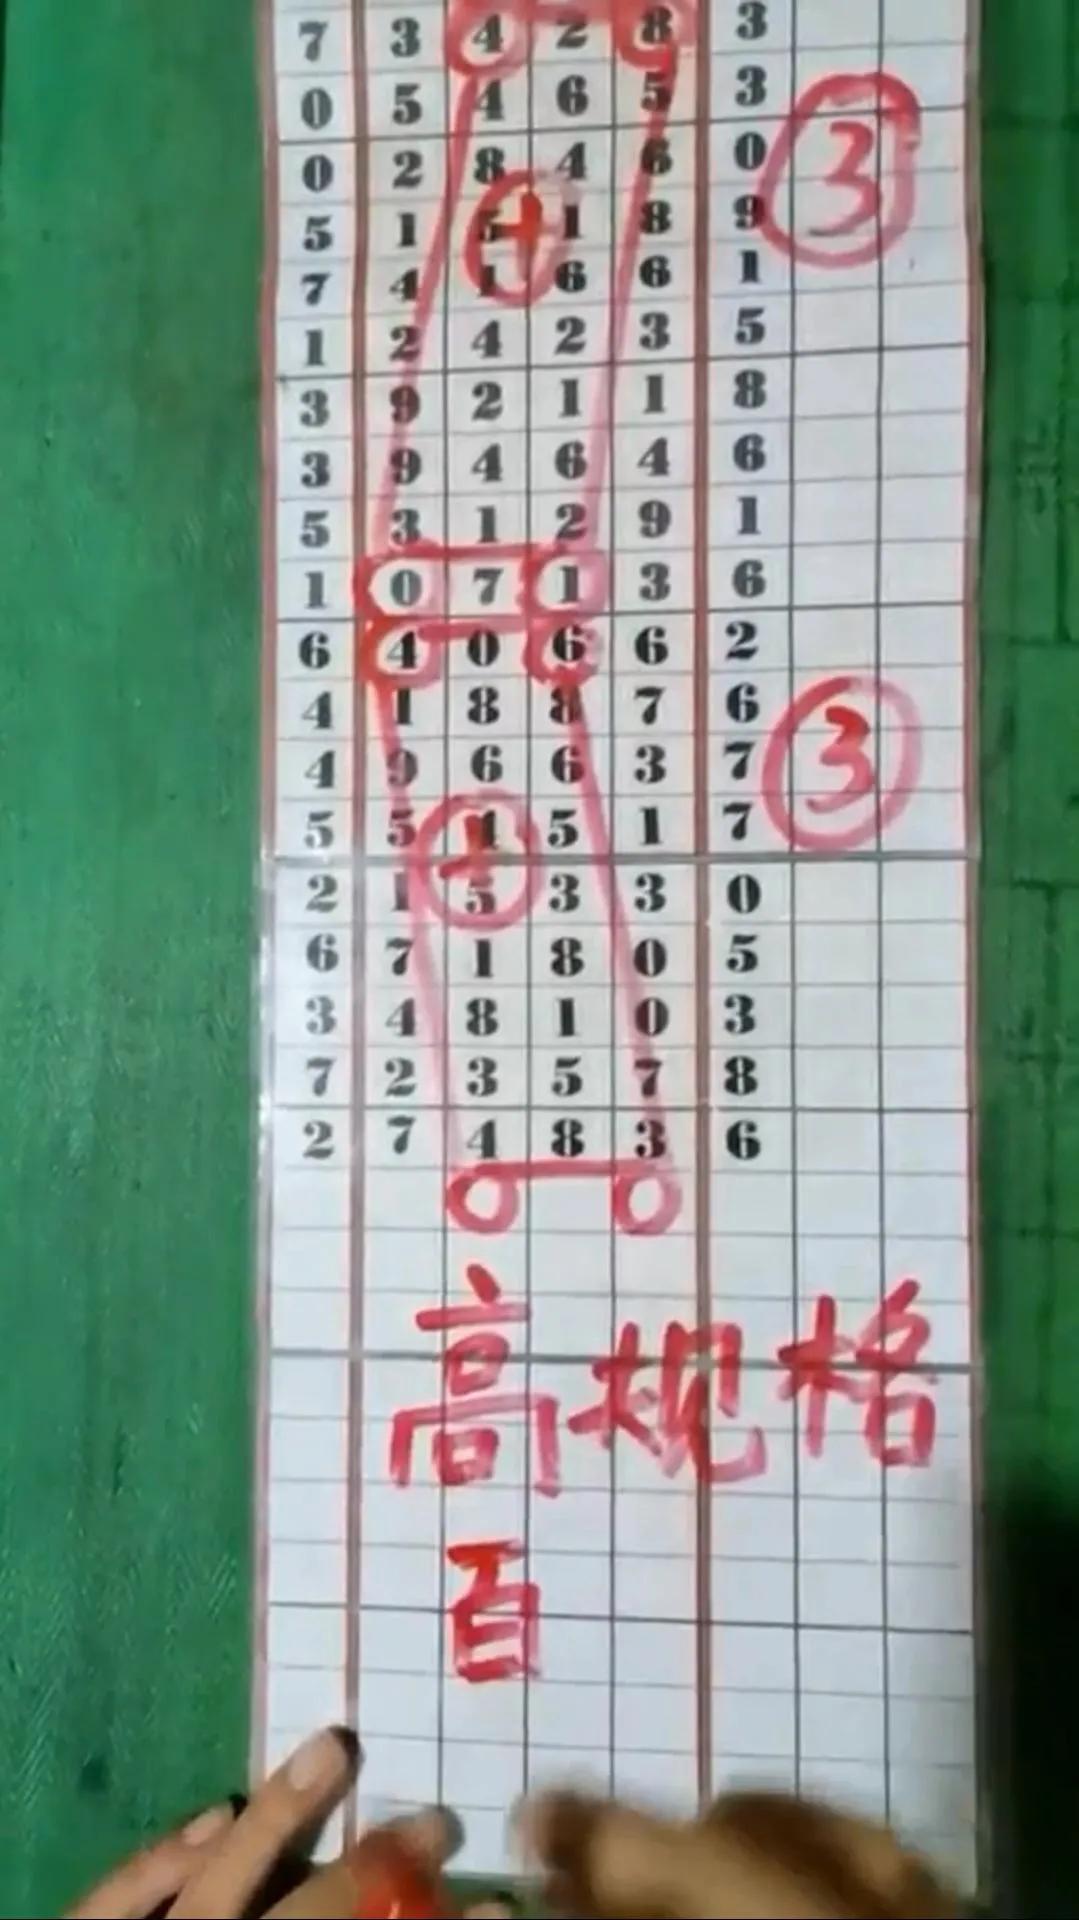 7 3 4 2 8 3
0 5 4 6 5 3
0 2 8 4 6 0
③
5 1 5 + 1 8 9
7 4 1 6 6 1
1 2 4 2 3 5
3 9 2 1 1 8
3 9 4 6 4 6
5 3 1 2 9 1
1 0 7 1 3 6
6 4 0 6 6 2
4 1 8 8 7 6
4 9 6 6 3 7
③
5 5 4 5 1 7
2 1 5 3 3 0
6 7 1 8 0 5
3 4 8 1 0 3
7 2 3 5 7 8
2 7 4 8 3 6
高规格
百